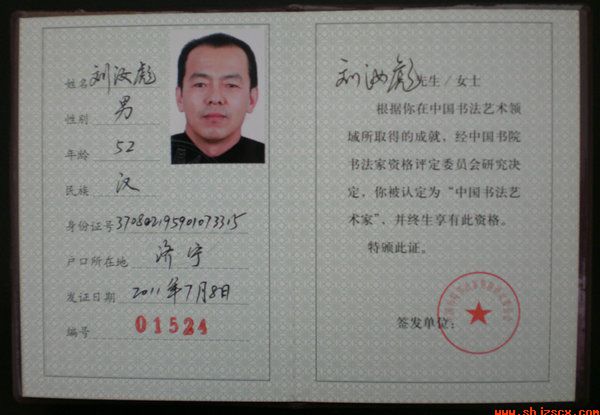 姓名 刘汝彪
性别 男
年龄 52
民族 汉
身份证号 370802195901073315
户口所在地 济宁
发证日期 2011年7月8日
编号 01524
刘汝彪 先生/女士
根据你在中国书法艺术领
域所取得的成就，经中国书院
书法家资格评定委员会研究决
定，你被认定为“中国书法艺
术家”，并终生享有此资格。
特颁此证。
签发单位：
www.shjzscx.com